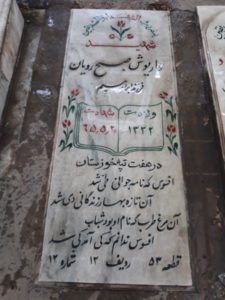 شهید
داریوش صبح رویان
فرزند ابراهیم
ولادت شهادت
۱۳۴۴ ۶۵,۵,۲
در هفت تپه خوزستان
افسوس که نامه جوانی طی شد
آن تازه بهار زندگانی دی شد
آن مرغ طرب که نام او بود شباب
افسوس ندانم که کی آمد کی شد
قطعه ۵۳ ردیف ۱۲ شماره ۱۳